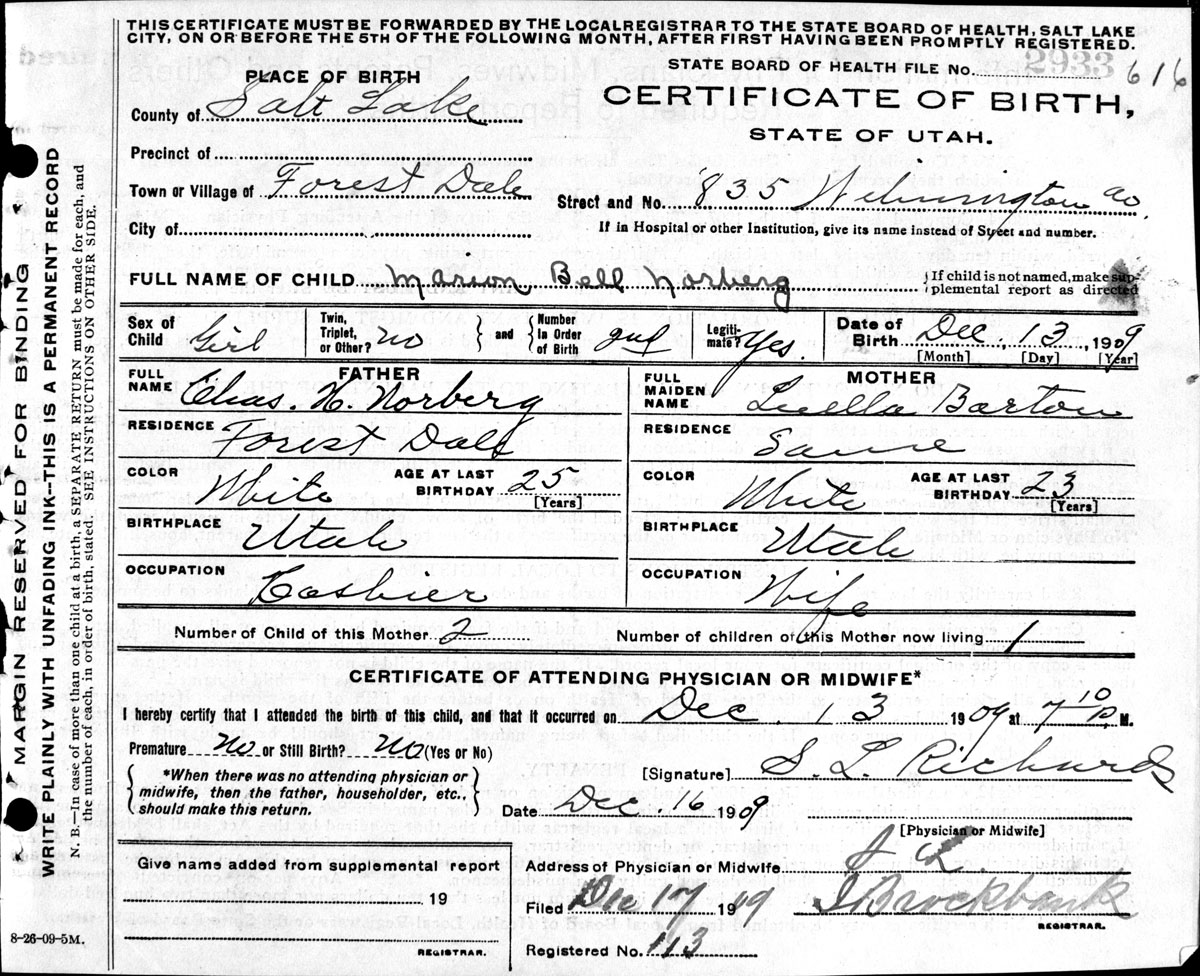 THIS CERTIFICATE MUST BE FORWARDED BY THE LOCAL REGISTRAR TO THE STATE BOARD OF HEALTH, SALT LAKE
CITY, ON OR BEFORE THE 5TH OF THE FOLLOWING MONTH, AFTER FIRST HAVING BEEN PROMPTLY REGISTERED.
STATE BOARD OF HEALTH FILE No. 2933 616
PLACE OF BIRTH
CERTIFICATE OF BIRTH,
STATE OF UTAH.
County of Salt Lake
Precinct of
Town or Village of Forest Dale
Street and No. 835 Wilmington av.
City of
If in Hospital or other Institution, give its name instead of Street and number.
FULL NAME OF CHILD Marion Bell Norberg
{If child is not named, make sup-
plemental report as directed
Sex of Child Girl
Twin, Triplet, or Other? no
} and {
Number in Order of Birth 2nd
Legiti- mate? Yes.
Date of Birth Dec. 13, 1909
[Month] [Day] [Year]
FATHER
FULL NAME Chas. H. Norberg
RESIDENCE Forest Dale
COLOR White
AGE AT LAST BIRTHDAY 25
[Years]
BIRTHPLACE Utah
OCCUPATION Cashier
MOTHER
FULL MAIDEN NAME Luella Barton
RESIDENCE Same
COLOR White
AGE AT LAST BIRTHDAY 23
[Years]
BIRTHPLACE Utah
OCCUPATION Wife
Number of Child of this Mother 2
Number of children of this Mother now living 1
CERTIFICATE OF ATTENDING PHYSICIAN OR MIDWIFE*
I hereby certify that I attended the birth of this child, and that it occurred on Dec. 13 1909 at 7 10 M.
Premature no or Still Birth? No (Yes or No)
{*When there was no attending physician or
midwife, then the father, householder, etc.,
should make this return.}
[Signature] S. L. Richards
Date Dec. 16 1909
[Physician or Midwife]
Give name added from supplemental report
19
REGISTRAR.
Address of Physician or Midwife
Filed Dec 17 1909
Brockbank
REGISTRAR.
Registered No. 113
8-26-09-5M.
MARGIN RESERVED FOR BINDING
WRITE PLAINLY WITH UNFADING INK—THIS IS A PERMANENT RECORD
N. B.—In case of more than one child at a birth, a SEPARATE RETURN must be made for each, and
the number of each, in order of birth, stated. SEE INSTRUCTIONS ON OTHER SIDE.